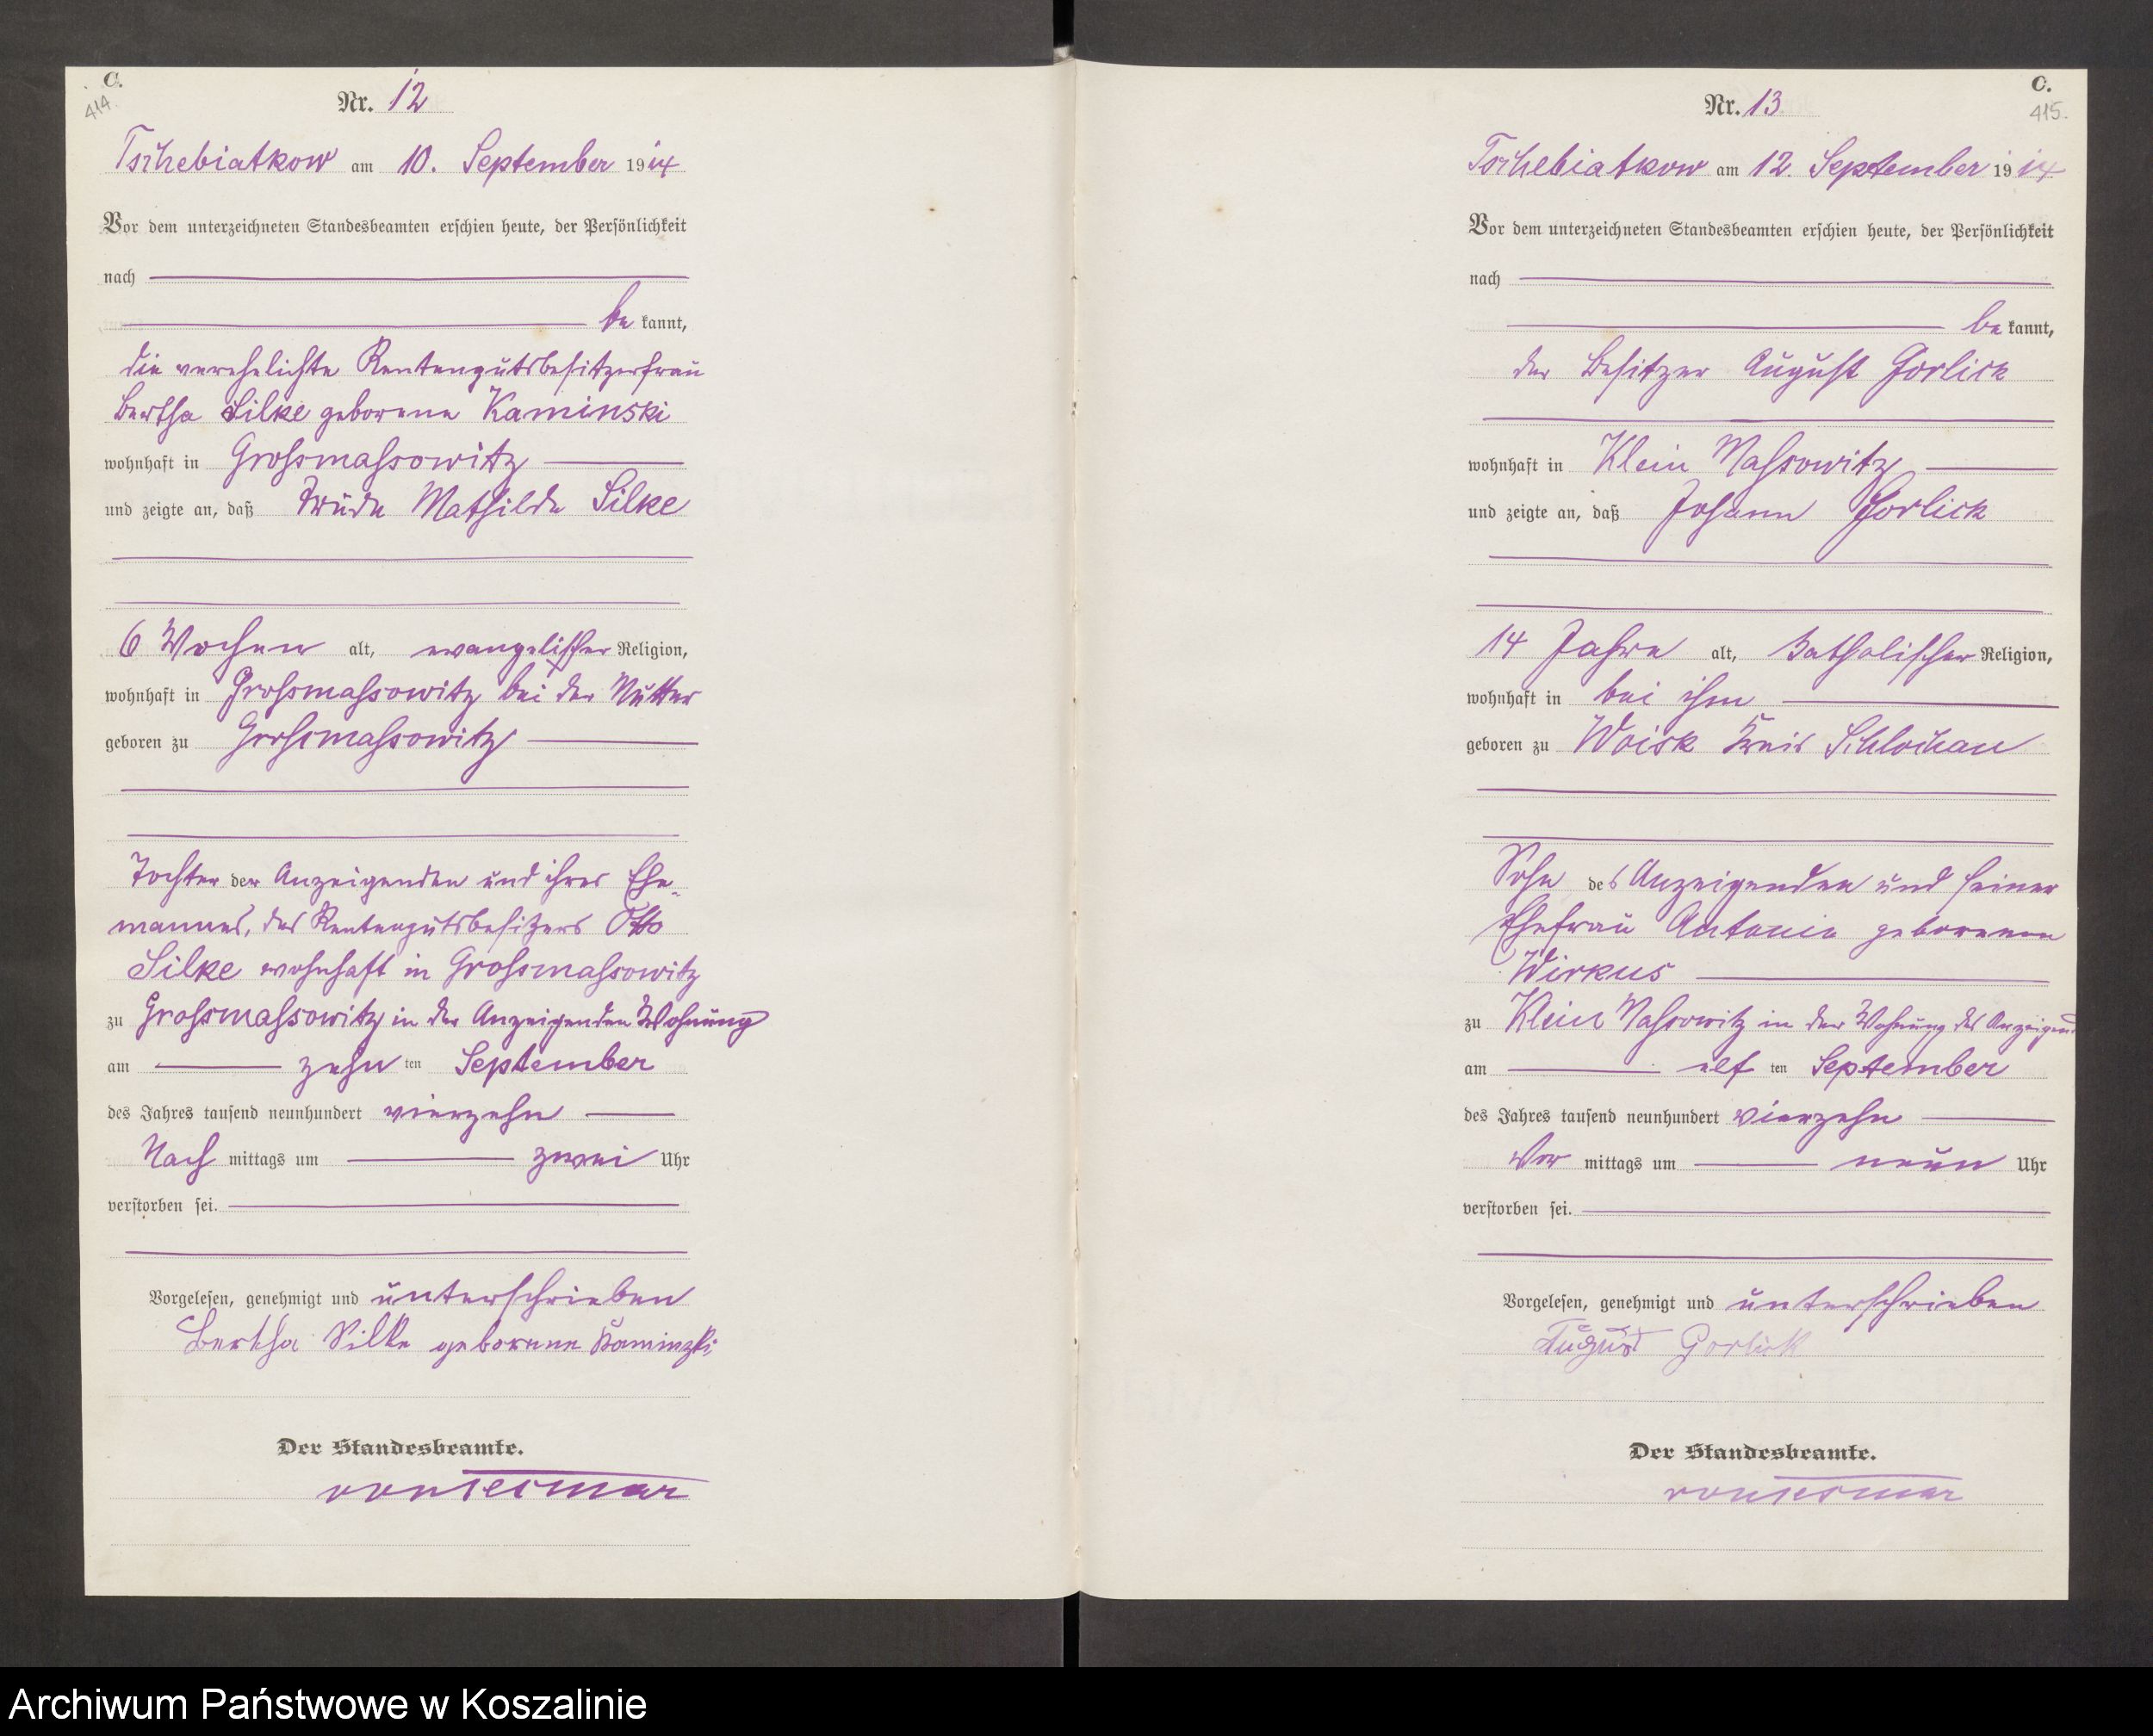 C.
414.
Nr. 12
Tschebiatkow am 10. September 1914
Vor dem unterzeichneten Standesbeamten erschien heute, der Persönlichkeit
nach
be kannt,
die verehelichte Rentengutsbesitzerfrau
Bertha Silke geborene Kaminski
wohnhaft in Grossmassowitz
und zeigte an, daß Trude Mathilde Silke
6 Wochen alt, evangelischer Religion,
wohnhaft in Grossmassowitz bei der Mutter
geboren zu Grossmassowitz
Tochter der Anzeigenden und ihres Ehe-
mannes, des Rentengutsbesitzers Otto
Silke wohnhaft in Grossmassowitz
zu Grossmassowitz in der Anzeigenden Wohnung
am zehn ten September
des Jahres tausend neunhundert vierzehn
Nach mittags um zwei Uhr
verstorben sei.
Vorgelesen, genehmigt und unterschrieben
Bertha Silke geborene Kaminzki
Der Standesbeamte.
von Tesmar
C.
415.
Nr. 13
Tschebiatkow am 12. September 1914
Vor dem unterzeichneten Standesbeamten erschien heute, der Persönlichkeit
nach
be kannt,
der Besitzer August Gorlick
wohnhaft in Klein Massowitz
und zeigte an, daß Johann Gorlick
14 Jahre alt, katholischer Religion,
wohnhaft in bei ihm
geboren zu Woisk Kreis Schlochau
Sohn des Anzeigenden und seiner
Ehefrau Antonie geborenen
Wirkus
zu Klein Massowitz in der Wohnung des Anzeigend
am elf ten September
des Jahres tausend neunhundert vierzehn
Vor mittags um neun Uhr
verstorben sei.
Vorgelesen, genehmigt und unterschrieben
August Gorlick
Der Standesbeamte.
von Tesmar
Archiwum Państwowe w Koszalinie